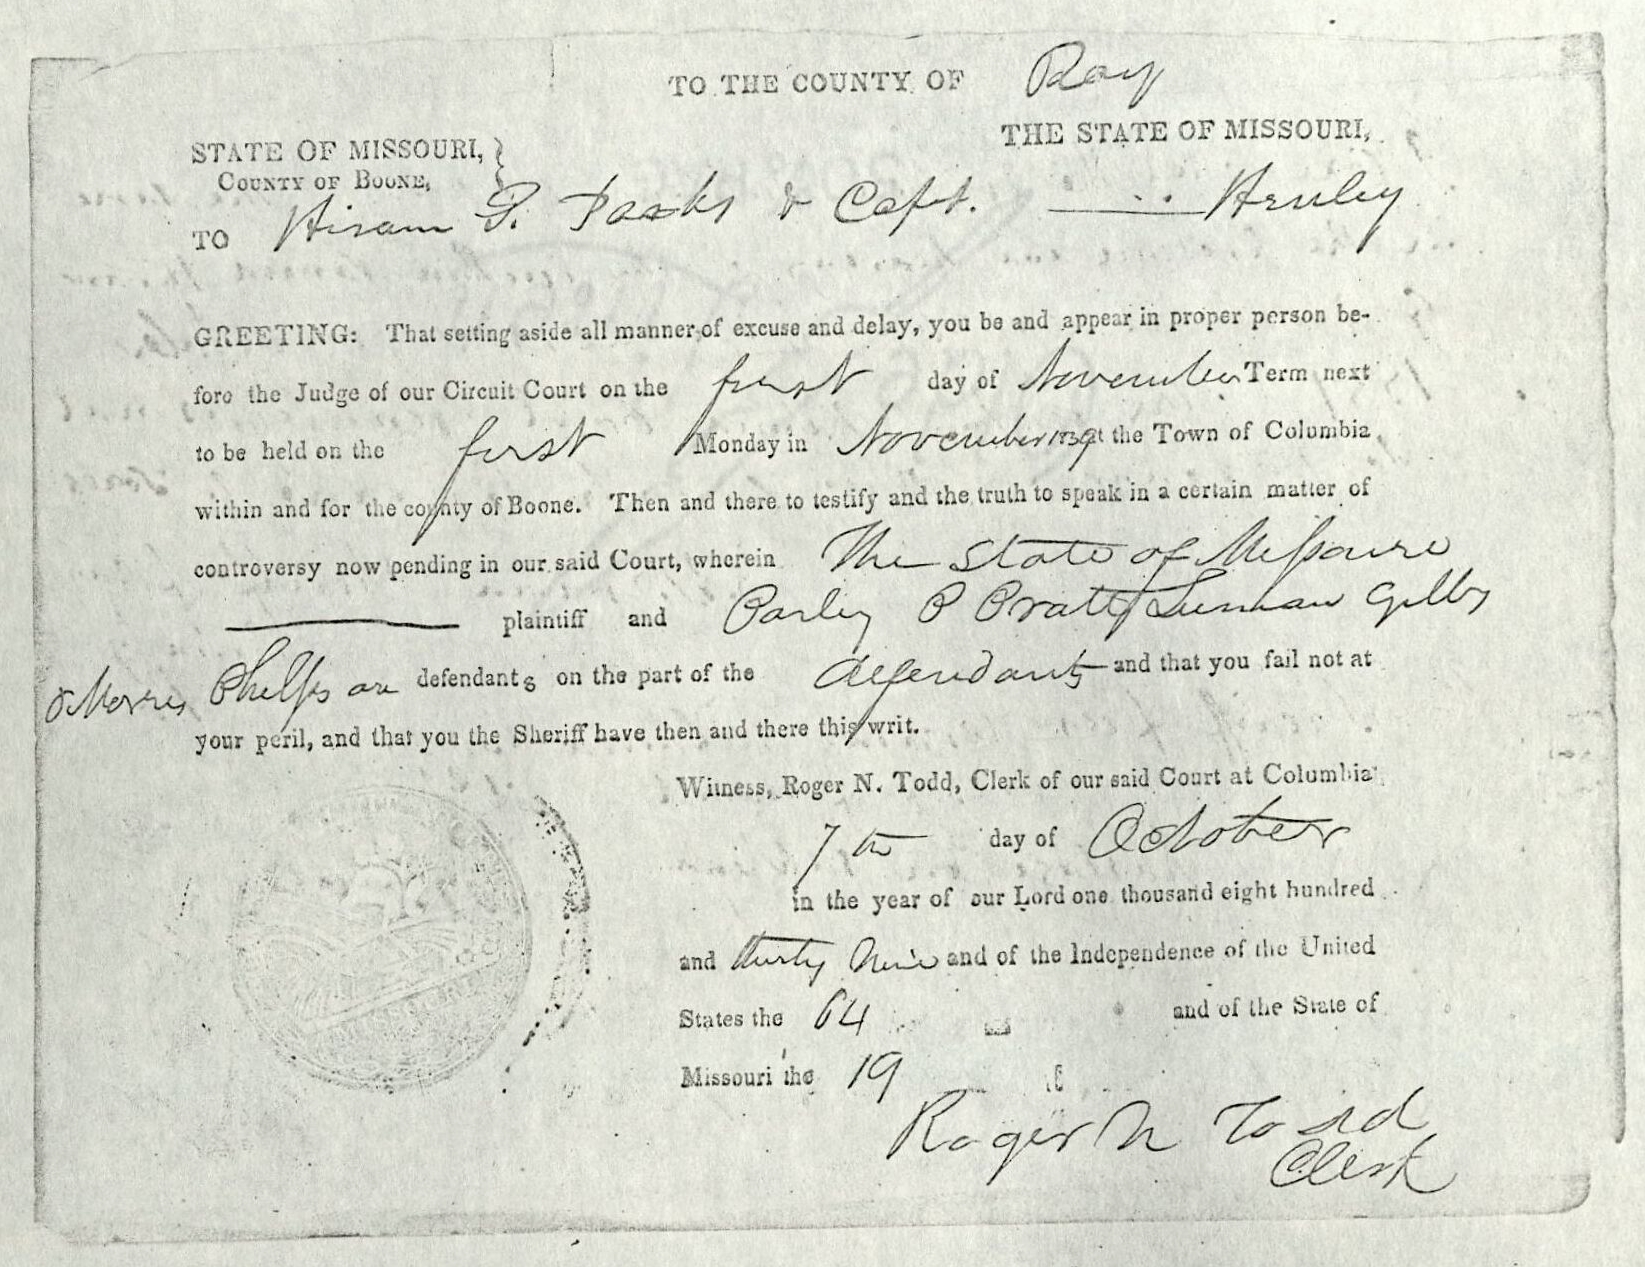 TO THE COUNTY OF Ray
THE STATE OF MISSOURI,
STATE OF MISSOURI, }
COUNTY OF BOONE,
TO Hiram G. Parks & Capt. ——— Henley
GREETING: That setting aside all manner of excuse and delay, you be and appear in proper person be-
fore the Judge of our Circuit Court on the first day of November Term next
to be held on the first Monday in November 1839 at the Town of Columbia
within and for the county of Boone. Then and there to testify and the truth to speak in a certain matter of
controversy now pending in our said Court, wherein The State of Missouri
——— plaintiff and Parley P Pratt Luman Gibbs
& Morris Phelps are defendants on the part of the defendants and that you fail not at
your peril, and that you the Sheriff have then and there this writ.
Witness, Roger N. Todd, Clerk of our said Court at Columbia
7th day of October
in the year of our Lord one thousand eight hundred
and thirty Nine and of the Independence of the United
States the 64 and of the State of
Missouri the 19
Roger N Todd
Clerk